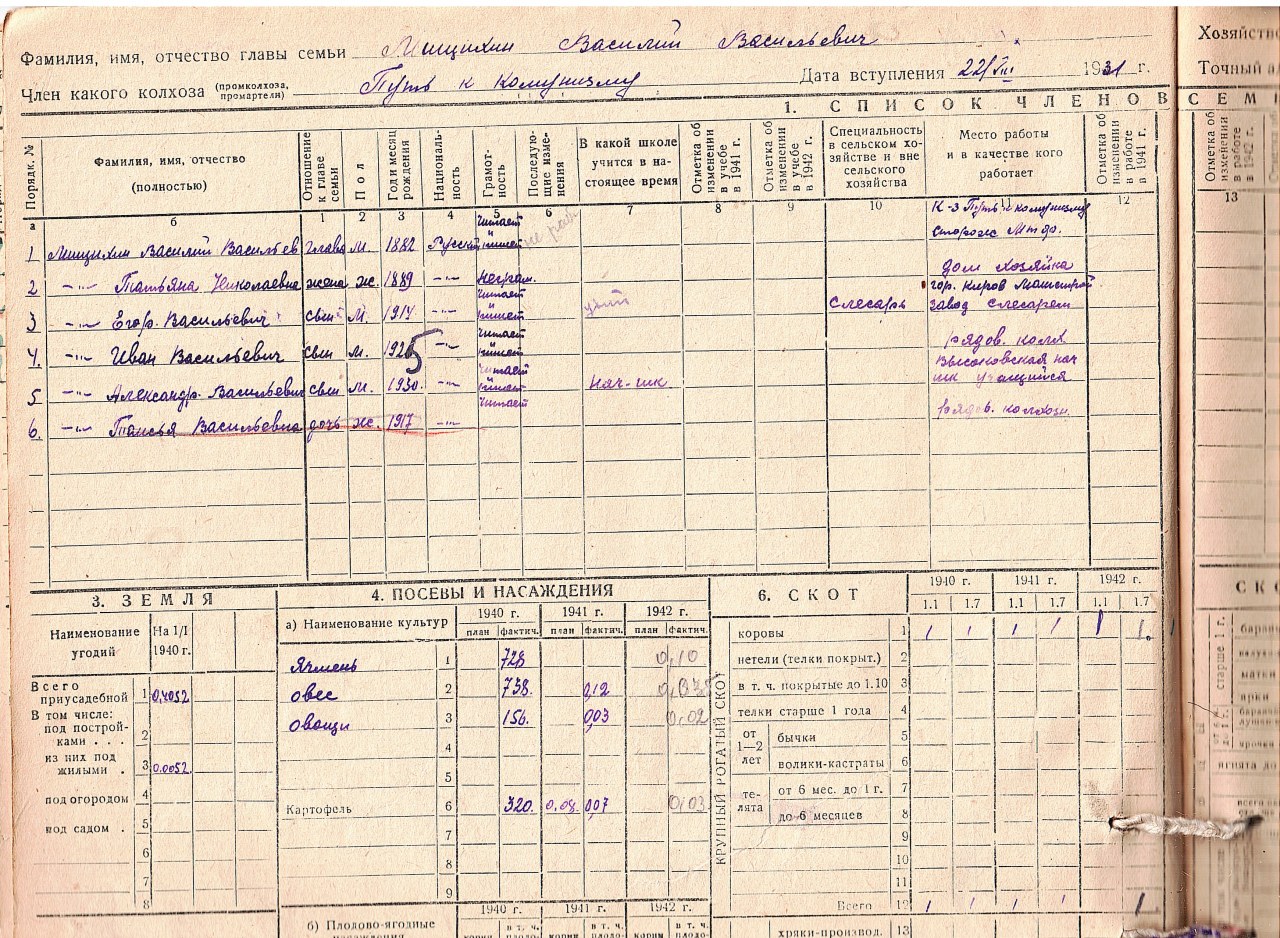 Фамилия, имя, отчество главы семьи Мищихин Василий Васильевич
Член какого колхоза (промколхоза, промартели) Путь к комунизму Дата вступления 22/VIII 1931 г.
1. СПИСОК ЧЛЕНОВ СЕМЬ
Порядк. № Фамилия, имя, отчество (полностью) Отношение к главе семьи Пол Год и месяц рождения Националь-ность Грамот-ность Последую-щие изме-нения В какой школе учится в на-стоящее время Отметка об изменении в учебе в 1941 г. Отметка об изменении в учебе в 1942 г. Специальность в сельском хо-зяйстве и вне сельского хозяйства Место работы и в качестве кого работает Отметка об изменении в работе в 1941 г.
а б 1 2 3 4 5 6 7 8 9 10 11 12
1 Мищихин Василий Васильев глава М. 1882 Русский читает и пишет К-з Путь к комунизму сторож Мтф.
2 -"- Татьяна Николаевна жена ж. 1889 -"- неграм. дом хозяйка
3 -"- Егор. Васильевич сын М. 1914 -"- читает и пишет слесарь гор. Киров завод слесарем
4. -"- Иван Васильевич сын м. 1925 -"- читает и пишет рядов. колх
5 -"- Александр. Васильевич сын м. 1930. -"- читает и пишет нач-шк Высоковская нач шк учащийся
6. -"- Таисья Васильевна дочь ж. 1917 -"- читает рядов. колхозн.
3. ЗЕМЛЯ
Наименование угодий На 1/I 1940 г.
Всего приусадебной 1 0,4052
В том числе:
под построй-ками . . . 2
из них под жилыми . 3 0.0052
под огородом 4
под садом . 5
6
7
8
4. ПОСЕВЫ И НАСАЖДЕНИЯ
а) Наименование культур 1940 г. 1941 г. 1942 г.
план фактич. план фактич. план фактич.
Ячмень 1 728 0,10
овес 2 738. 0,12
овощи 3 156. 0,03 0,02
4
5
Картофель 6 320. 0,08. 0,07 0,03
7
8
9
1940 г. 1941 г. 1942 г.
б) Плодово-ягодные
6. СКОТ
1940 г. 1941 г. 1942 г.
1.1 1.7 1.1 1.7 1.1 1.7
КРУПНЫЙ РОГАТЫЙ СКОТ
коровы 1 1 1 1 1 1 1.
нетели (телки покрыт.) 2
в т. ч. покрытые до 1.10 3
телки старше 1 года 4
от 1—2 лет бычки 5
волики-кастраты 6
те-лята от 6 мес. до 1 г. 7
до 6 месяцев 8
9
10
11
Всего 12 1 1 1 1 1
хряки-производ. 13
Хозяйство
Точный ад
Отметка об изменении в работе в 1942 г.
13
СКО
старше 1 г.